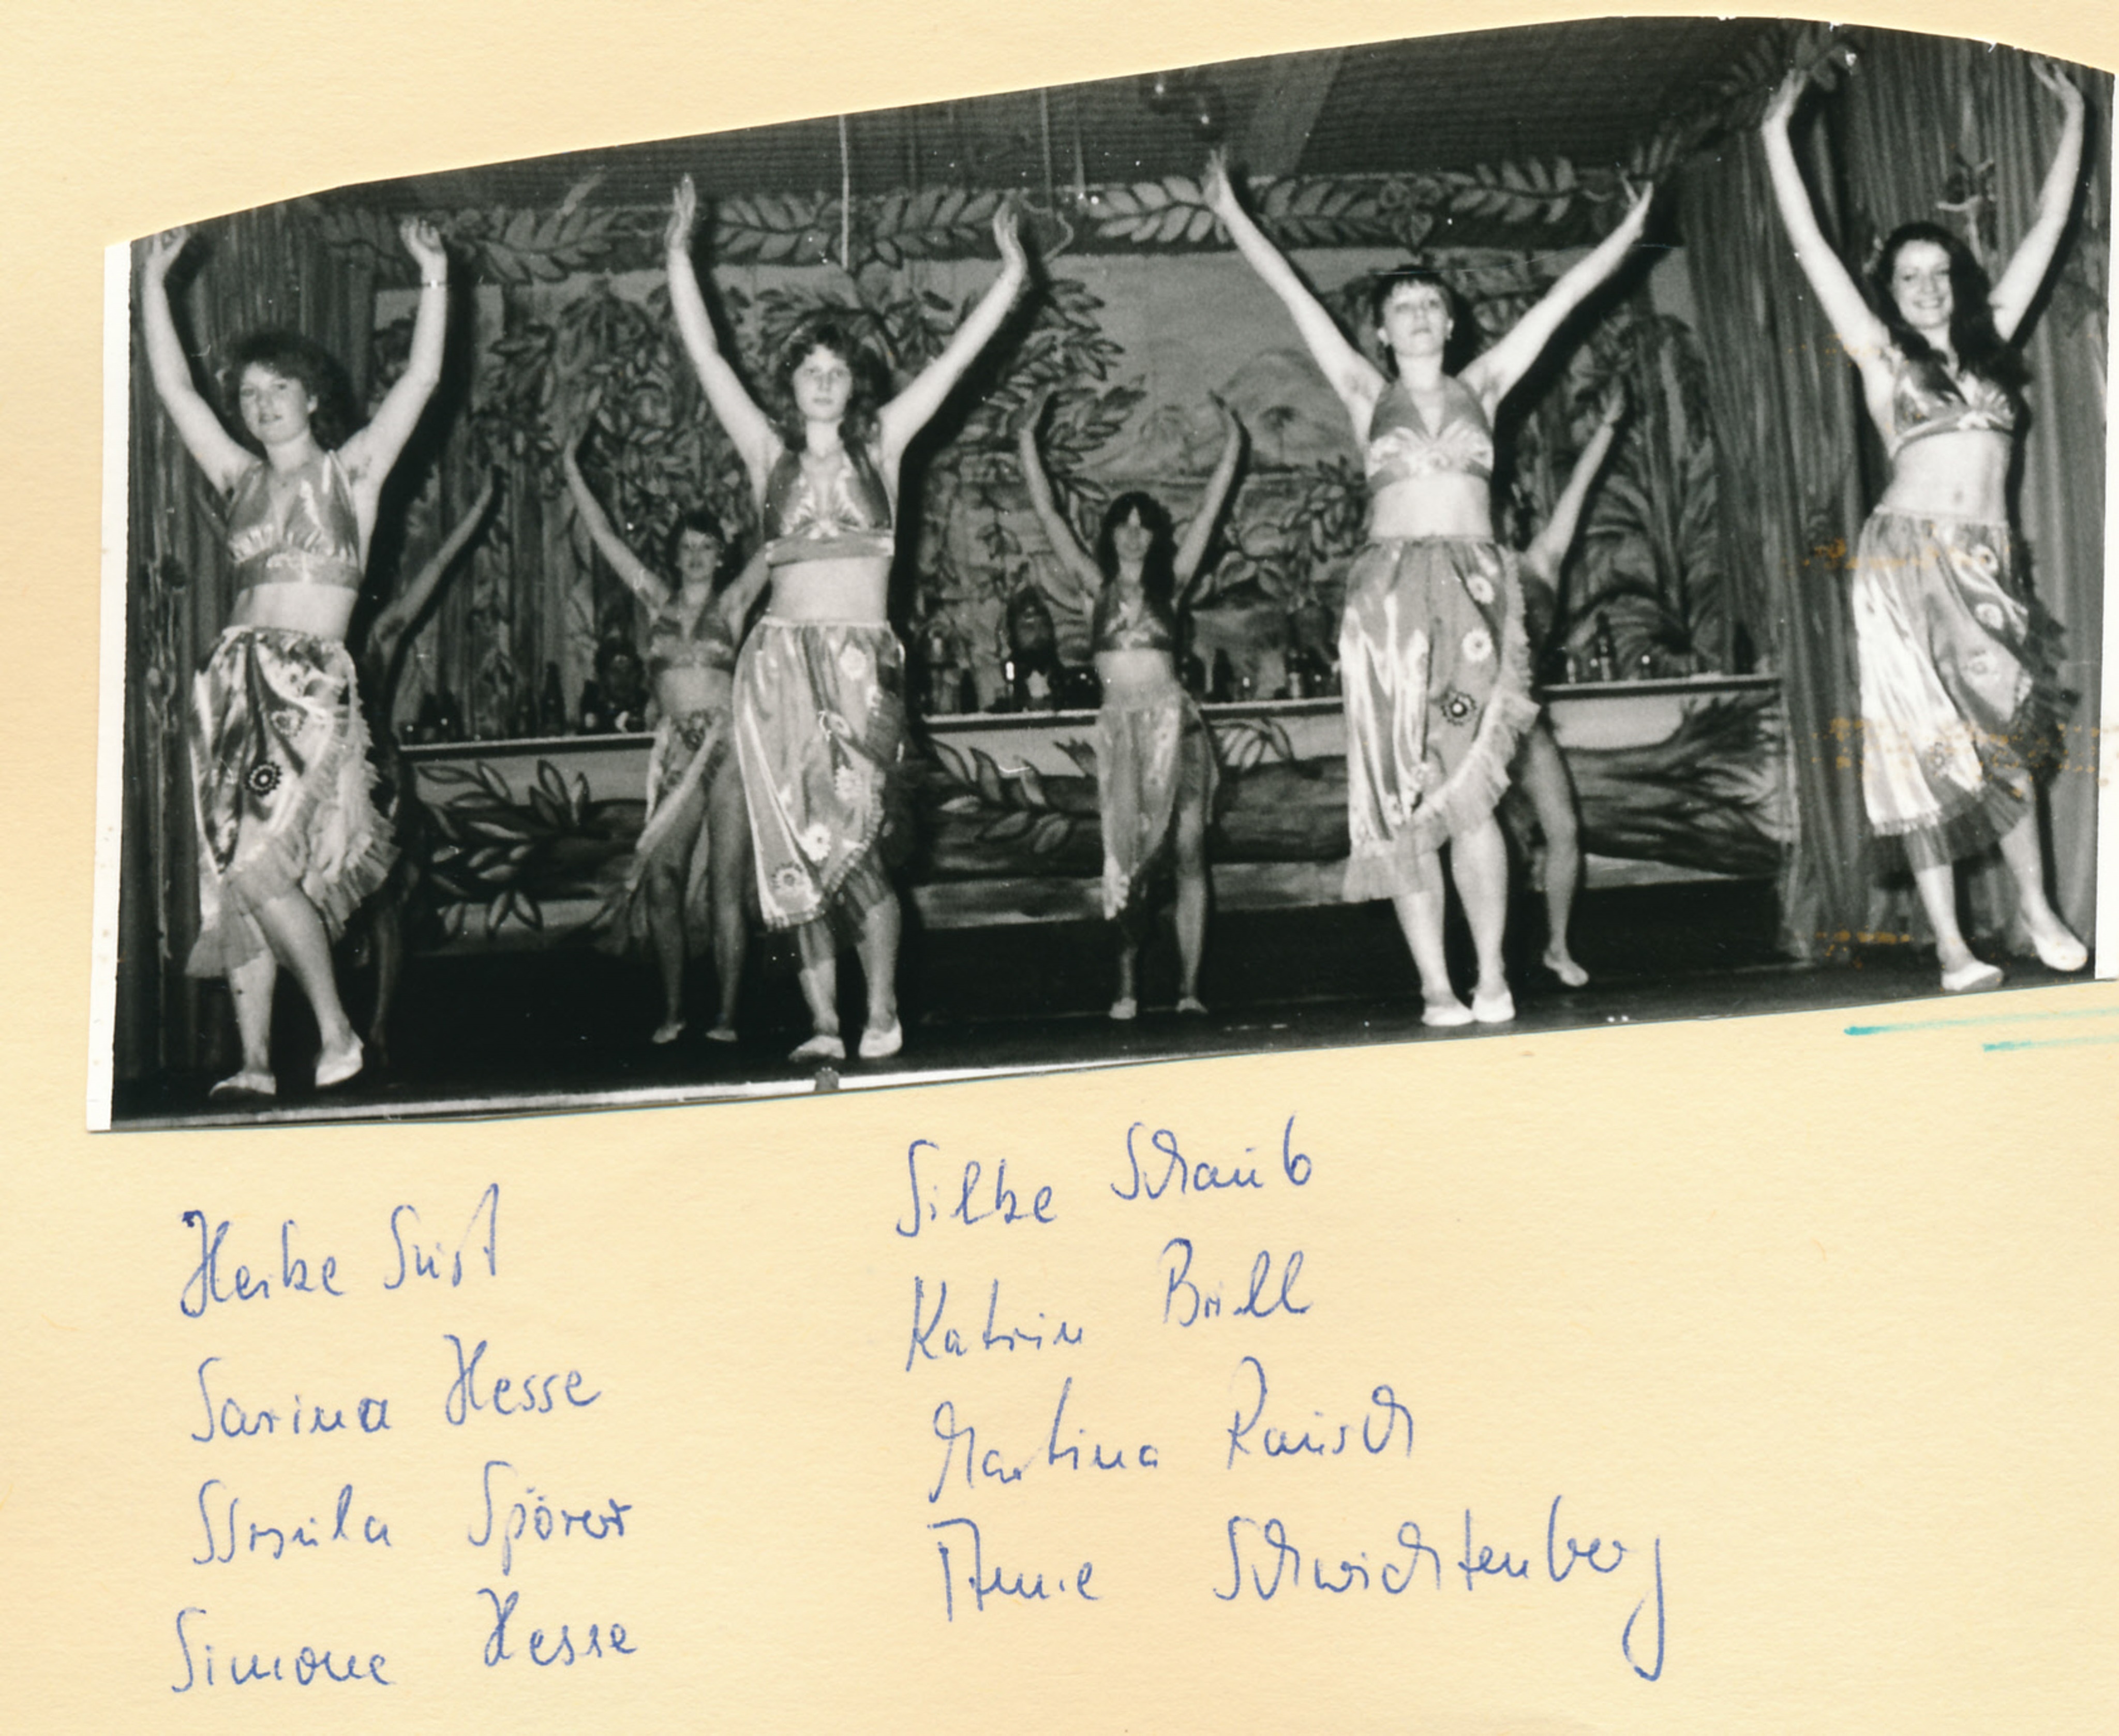 Heike Sust
Sarina Hesse
Ursula Spörer
Simone Hesse
Silke Schaub
Katrin Brill
Martina Rausch
Anne Schwichtenberg